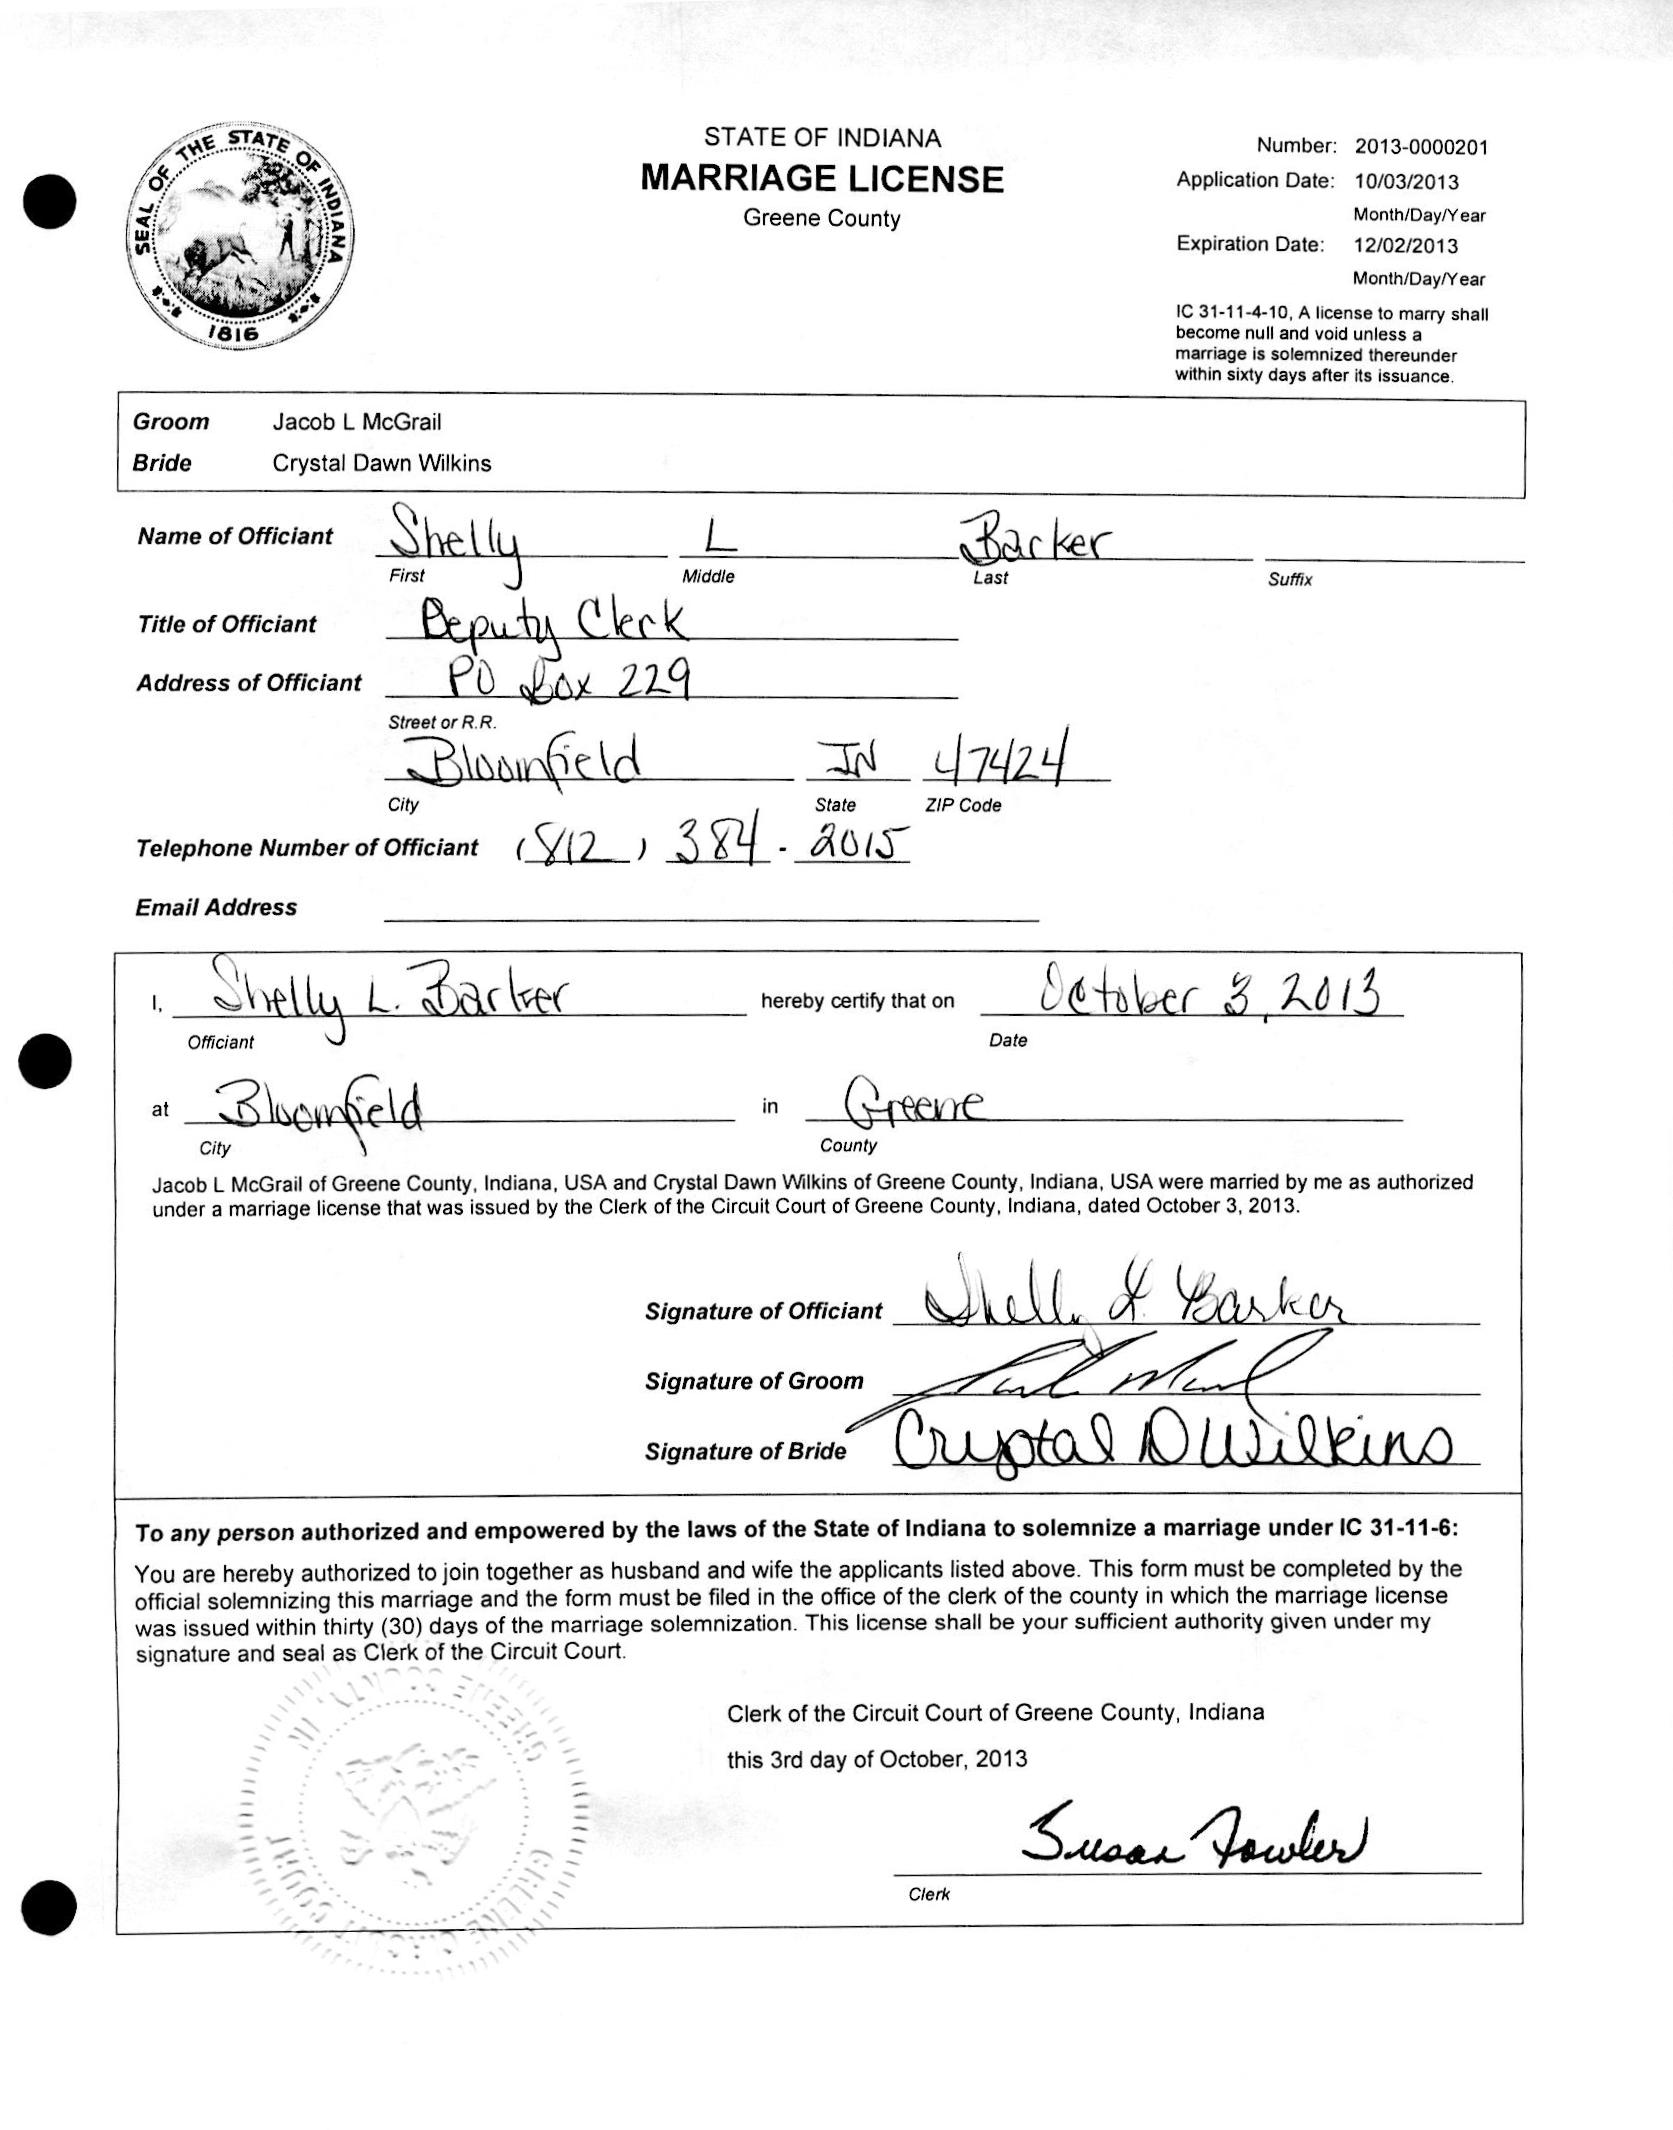 SEAL OF THE STATE OF INDIANA
1816
STATE OF INDIANA
MARRIAGE LICENSE
Greene County
Number: 2013-0000201
Application Date: 10/03/2013
Month/Day/Year
Expiration Date: 12/02/2013
Month/Day/Year
IC 31-11-4-10, A license to marry shall
become null and void unless a
marriage is solemnized thereunder
within sixty days after its issuance.
Groom Jacob L McGrail
Bride Crystal Dawn Wilkins
Name of Officiant Shelly L Barker
First Middle Last Suffix
Title of Officiant Deputy Clerk
Address of Officiant PO Box 229
Street or R.R.
Bloomfield IN 47424
City State ZIP Code
Telephone Number of Officiant (812) 384 - 2015
Email Address
I, Shelly L. Barker hereby certify that on October 3, 2013
Officiant Date
at Bloomfield in Greene
City County
Jacob L McGrail of Greene County, Indiana, USA and Crystal Dawn Wilkins of Greene County, Indiana, USA were married by me as authorized
under a marriage license that was issued by the Clerk of the Circuit Court of Greene County, Indiana, dated October 3, 2013.
Signature of Officiant Shelly L. Barker
Signature of Groom
Signature of Bride Crystal D Wilkins
To any person authorized and empowered by the laws of the State of Indiana to solemnize a marriage under IC 31-11-6:
You are hereby authorized to join together as husband and wife the applicants listed above. This form must be completed by the
official solemnizing this marriage and the form must be filed in the office of the clerk of the county in which the marriage license
was issued within thirty (30) days of the marriage solemnization. This license shall be your sufficient authority given under my
signature and seal as Clerk of the Circuit Court.
Clerk of the Circuit Court of Greene County, Indiana
this 3rd day of October, 2013
Susan Fowler
Clerk